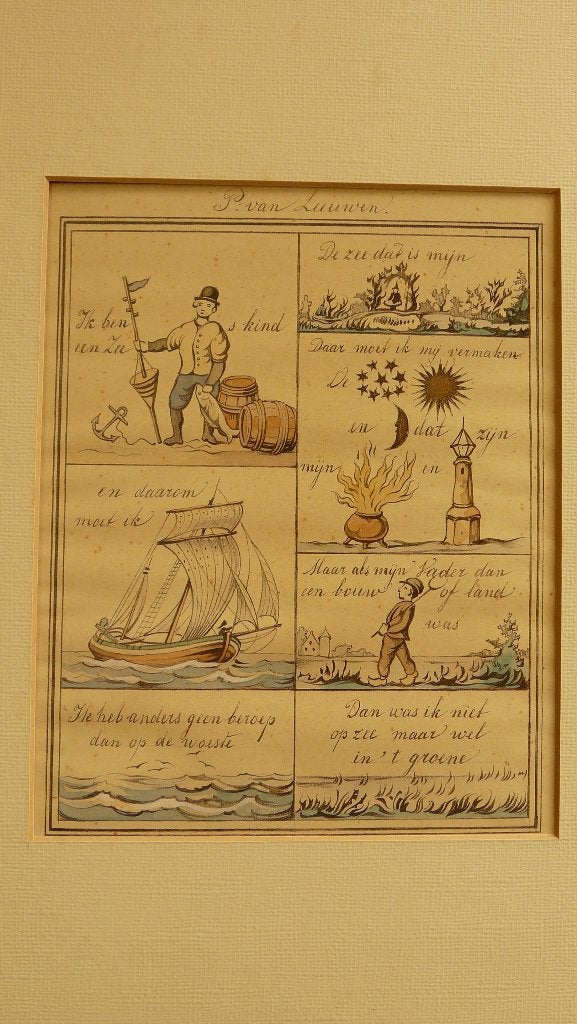 P. van Leeuwen.
Ik ben s kind
een Zee
en daarom
moet ik
Ik heb anders geen beroep
dan op de woeste
De zee dat is mijn
Daar moet ik mij vermaken
De
en dat zijn
mijn en
Maar als mijn Vader dan
een bouw of land
was
Dan was ik niet
op zee maar wel
in 't groene